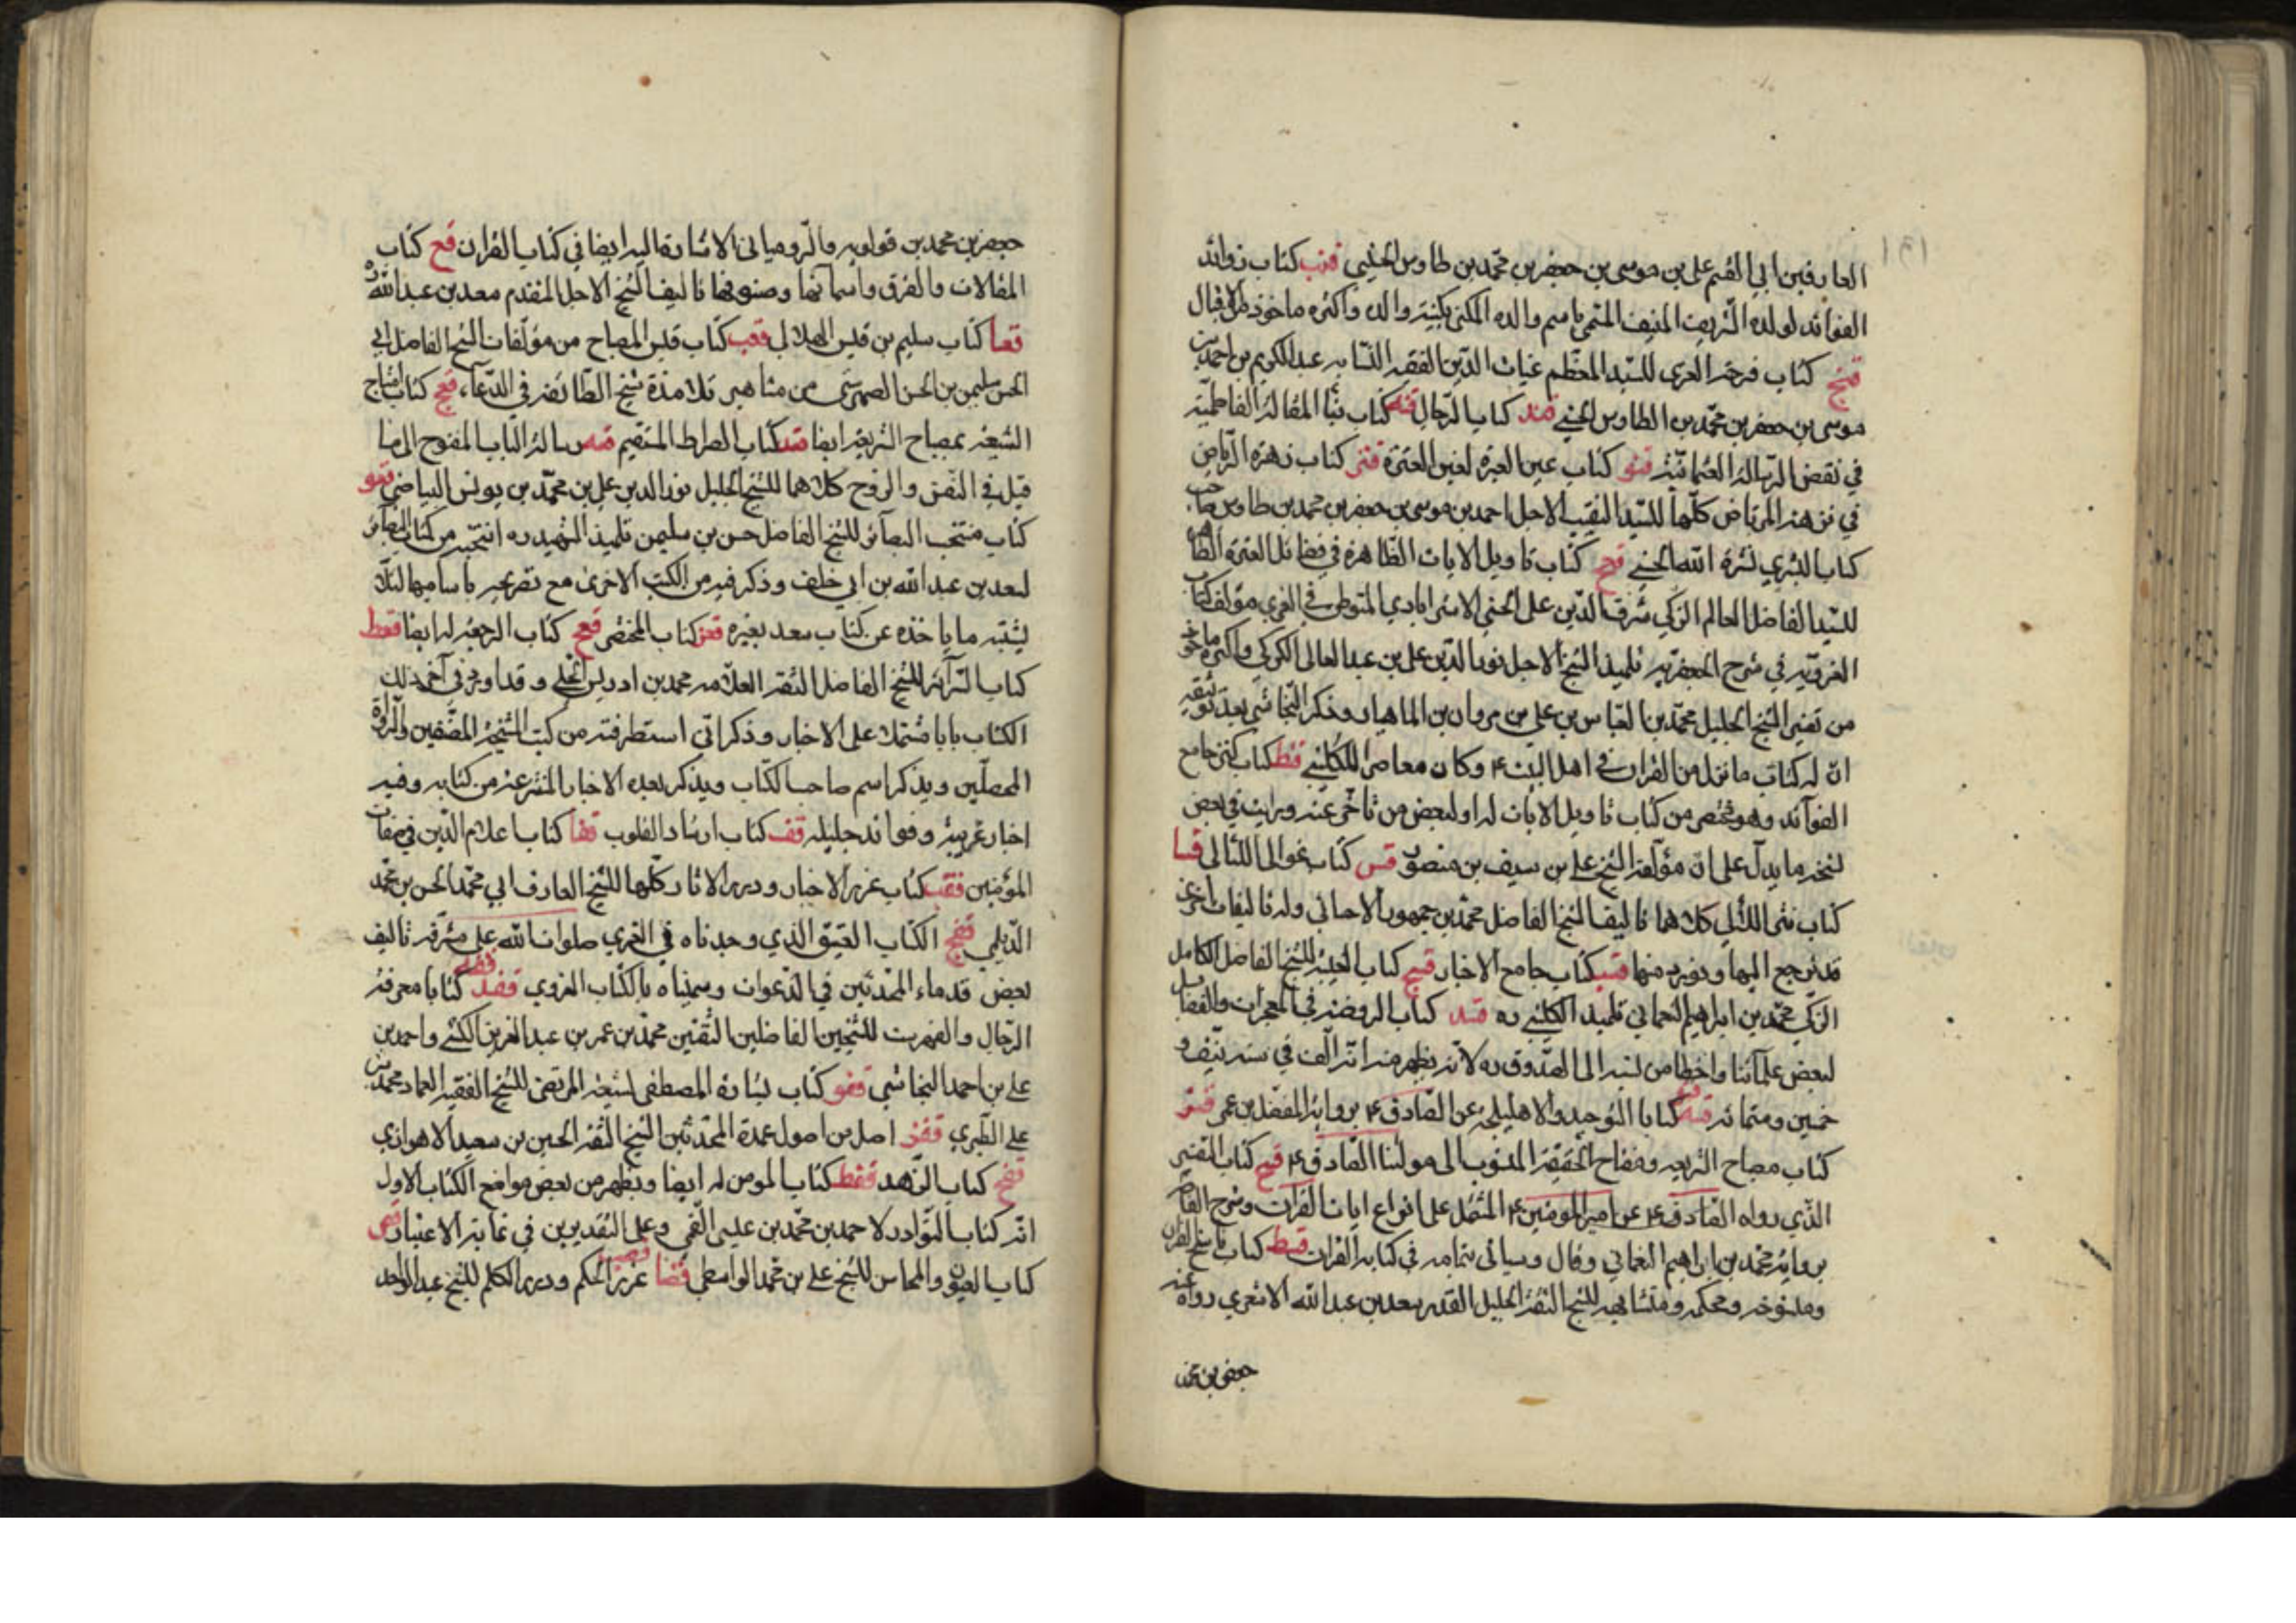 العارفين ابي القسم علي بن موسى بن جعفر بن محمد بن طاوس الحسيني قنب كتاب زوائد
الفوائد لولده الشريف المنيف المتمي باسم والده المكنى بكنيته والده واكثره ماخوذ من الاقبال
قنج كتاب فرحة الغري للسيد المعظم غياث الدين الفقيه النسابه عبد الكريم بن احمد بن
موسى بن جعفر بن محمد بن الطاوس الحسني قند كتاب الرجال قنه كتاب بنأ المقالة الفاطمية
في نقض الرسالة العثمانية قنو كتاب عين العبرة لغبن العترة قنز كتاب زهرة الرياض
في نزهة المرتاض كلها للسيد النقيب الاجل احمد بن موسى بن جعفر بن محمد بن طاوس صاحب
كتاب البشرى بشره الله الحسني قنح كتاب تاويل الايات الظاهرة في فضائل العترة الطاهرة
للسيد الفاضل العالم الزكي شرف الدين علي الحسني الاسترابادي المتوطن في الغري مؤلف كتاب
الغروية في شرح الجعفرية تلميذ الشيخ الاجل نور الدين علي بن عبد العالي الكركي واكثره ماخوذ
من تفسير الشيخ الجليل محمد بن العباس بن علي بن مروان بن الماهيار وذكر النجاشي بعد توثيقه
ان له كتاب ما نزل من القران في اهل البيت ع وكان معاصرا للكليني قنط كتاب كنز جامع
الفوآئد وهو مختصر من كتاب تاويل الايات له او لبعض من تاخر عنه ورايت في بعض
نسخه ما يدل على ان مؤلفه الشيخ علي بن سيف بن منصور قس كتاب غوالي اللئالي قسا
كتاب نثر اللئالي كلاهما تاليف الشيخ الفاضل محمد بن جمهور الاحسائي وله تاليفات اخرى
قد نرجع اليها ونورد منها قسب كتاب جامع الاخبار قسج كتاب الغيبة للشيخ الفاضل الكامل
الزكي محمد بن ابراهيم النعماني تلميذ الكليني ره قسد كتاب الروضة في المعجزات والفضايل
لبعض علمآئنا واخطا من نسبه الى الصدوق ره لانه يظهر منه انه الف في سنة نيف و
خمسين وستمائه قسه قسو كتابا التوحيد والاهليلجه عن الصادق ع برواية المفضل بن عمر قسز
كتاب مصباح الشريعه ومفتاح الحقيقة المنسوب الى مولينا الصادق ع قسح كتاب التفسير
الذي رواه الصادق ع عن امير المومنين ع المشتمل على انواع ايات القرآن وشرح الفاظه
برواية محمد بن ابراهيم النعماني وقال وسياتي بتمامه في كتابه القرآن قسط كتاب ناسخ القرآن
ومنسوخه ومحكمه ومتشابهه للشيخ الثقة الجليل القدر سعد بن عبد الله الاشعري رواه عنه
جعفر بن محمد
جعفر بن محمد بن قولويه والرومياتي الاشارة اليه ايضا في كتاب القران قع كتاب
المقالات والفرق واسمائها وصنوفها تاليف الشيخ الاجل المتقدم سعد بن عبد الله ره
قعا كتاب سليم بن قيس الهلالي قعب كتاب قبس المصباح من مؤلفات الشيخ الفاضل ابي
الحسن سليمن بن الحسن الصهرشتي من مشاهير تلامذة شيخ الطائفة في الدعآء قعج كتاب اصباح
الشيعة بمصباح الشريعة ايضا قعد كتاب الصراط المستقيم قعه رسالة الباب المفتوح الى ما
قيل في النفس والروح كلاهما للشيخ الجليل نور الدين علي بن محمد بن يونس البياضي قعو
كتاب منتخب البصآئر للشيخ الفاضل حسن بن سليمن تلميذ الشهيد ره انتخبه من كتاب البصآئر
لسعد بن عبد الله بن ابي خلف وذكر فيه من الكتب الاخرى مع تصريحه باساميها لئلا
يشتبه ما ياخذه عن كتاب سعد بغيره قعز كتاب المختصر قعح كتاب الرجعة له ايضا قعط
كتاب السرآئر للشيخ الفاضل الثقه العلامه محمد بن ادريس الحلي وقد اورد في آخر ذلك
الكتاب بابا مشتملا على الاخبار وذكر اني استطرفته من كتب المشيخة المصنفين والرواة
المحصلين ويذكر اسم صاحب الكتاب ويذكر بعده الاخبار المنتزعة من كتابه وفيه
اخبار غريبة وفوائد جليله قف كتاب ارشاد القلوب قفا كتاب اعلام الدين في صفات
المؤمنين قفب كتاب غرر الاخبار ودرر الاثار كلها للشيخ العارف ابي محمد الحسن بن محمد
الديلمي قفج الكتاب العتيق الذي وجدناه في الغري صلوات الله على مشرفه تاليف
بعض قدماء المحدثين في الدعوات وسميناه بالكتاب الغروي قفد قفه كتابا معرفة
الرجال والفهرست للشيخين الفاضلين الثقتين محمد بن عمر بن عبد العزيز الكشي واحمد بن
علي بن احمد النجاشي قفو كتاب بشارة المصطفى لشيعة المرتضى للشيخ الفقيه العماد محمد بن
علي الطبري قفز اصل من اصول عمدة المحدثين الشيخ الثقة الحسين بن سعيد الاهوازي
قفح كتاب الزهد قفط كتاب المومن له ايضا ويظهر من بعض مواضع الكتاب الاول
انه كتاب النوادر لاحمد بن محمد بن عيسى القمي وعلى التقديرين في غاية الاعتبار قص
كتاب العيون والمحاسن للشيخ علي بن محمد الواسطي قصا غرر الحكم ودرر الكلم للشيخ عبد الواحد